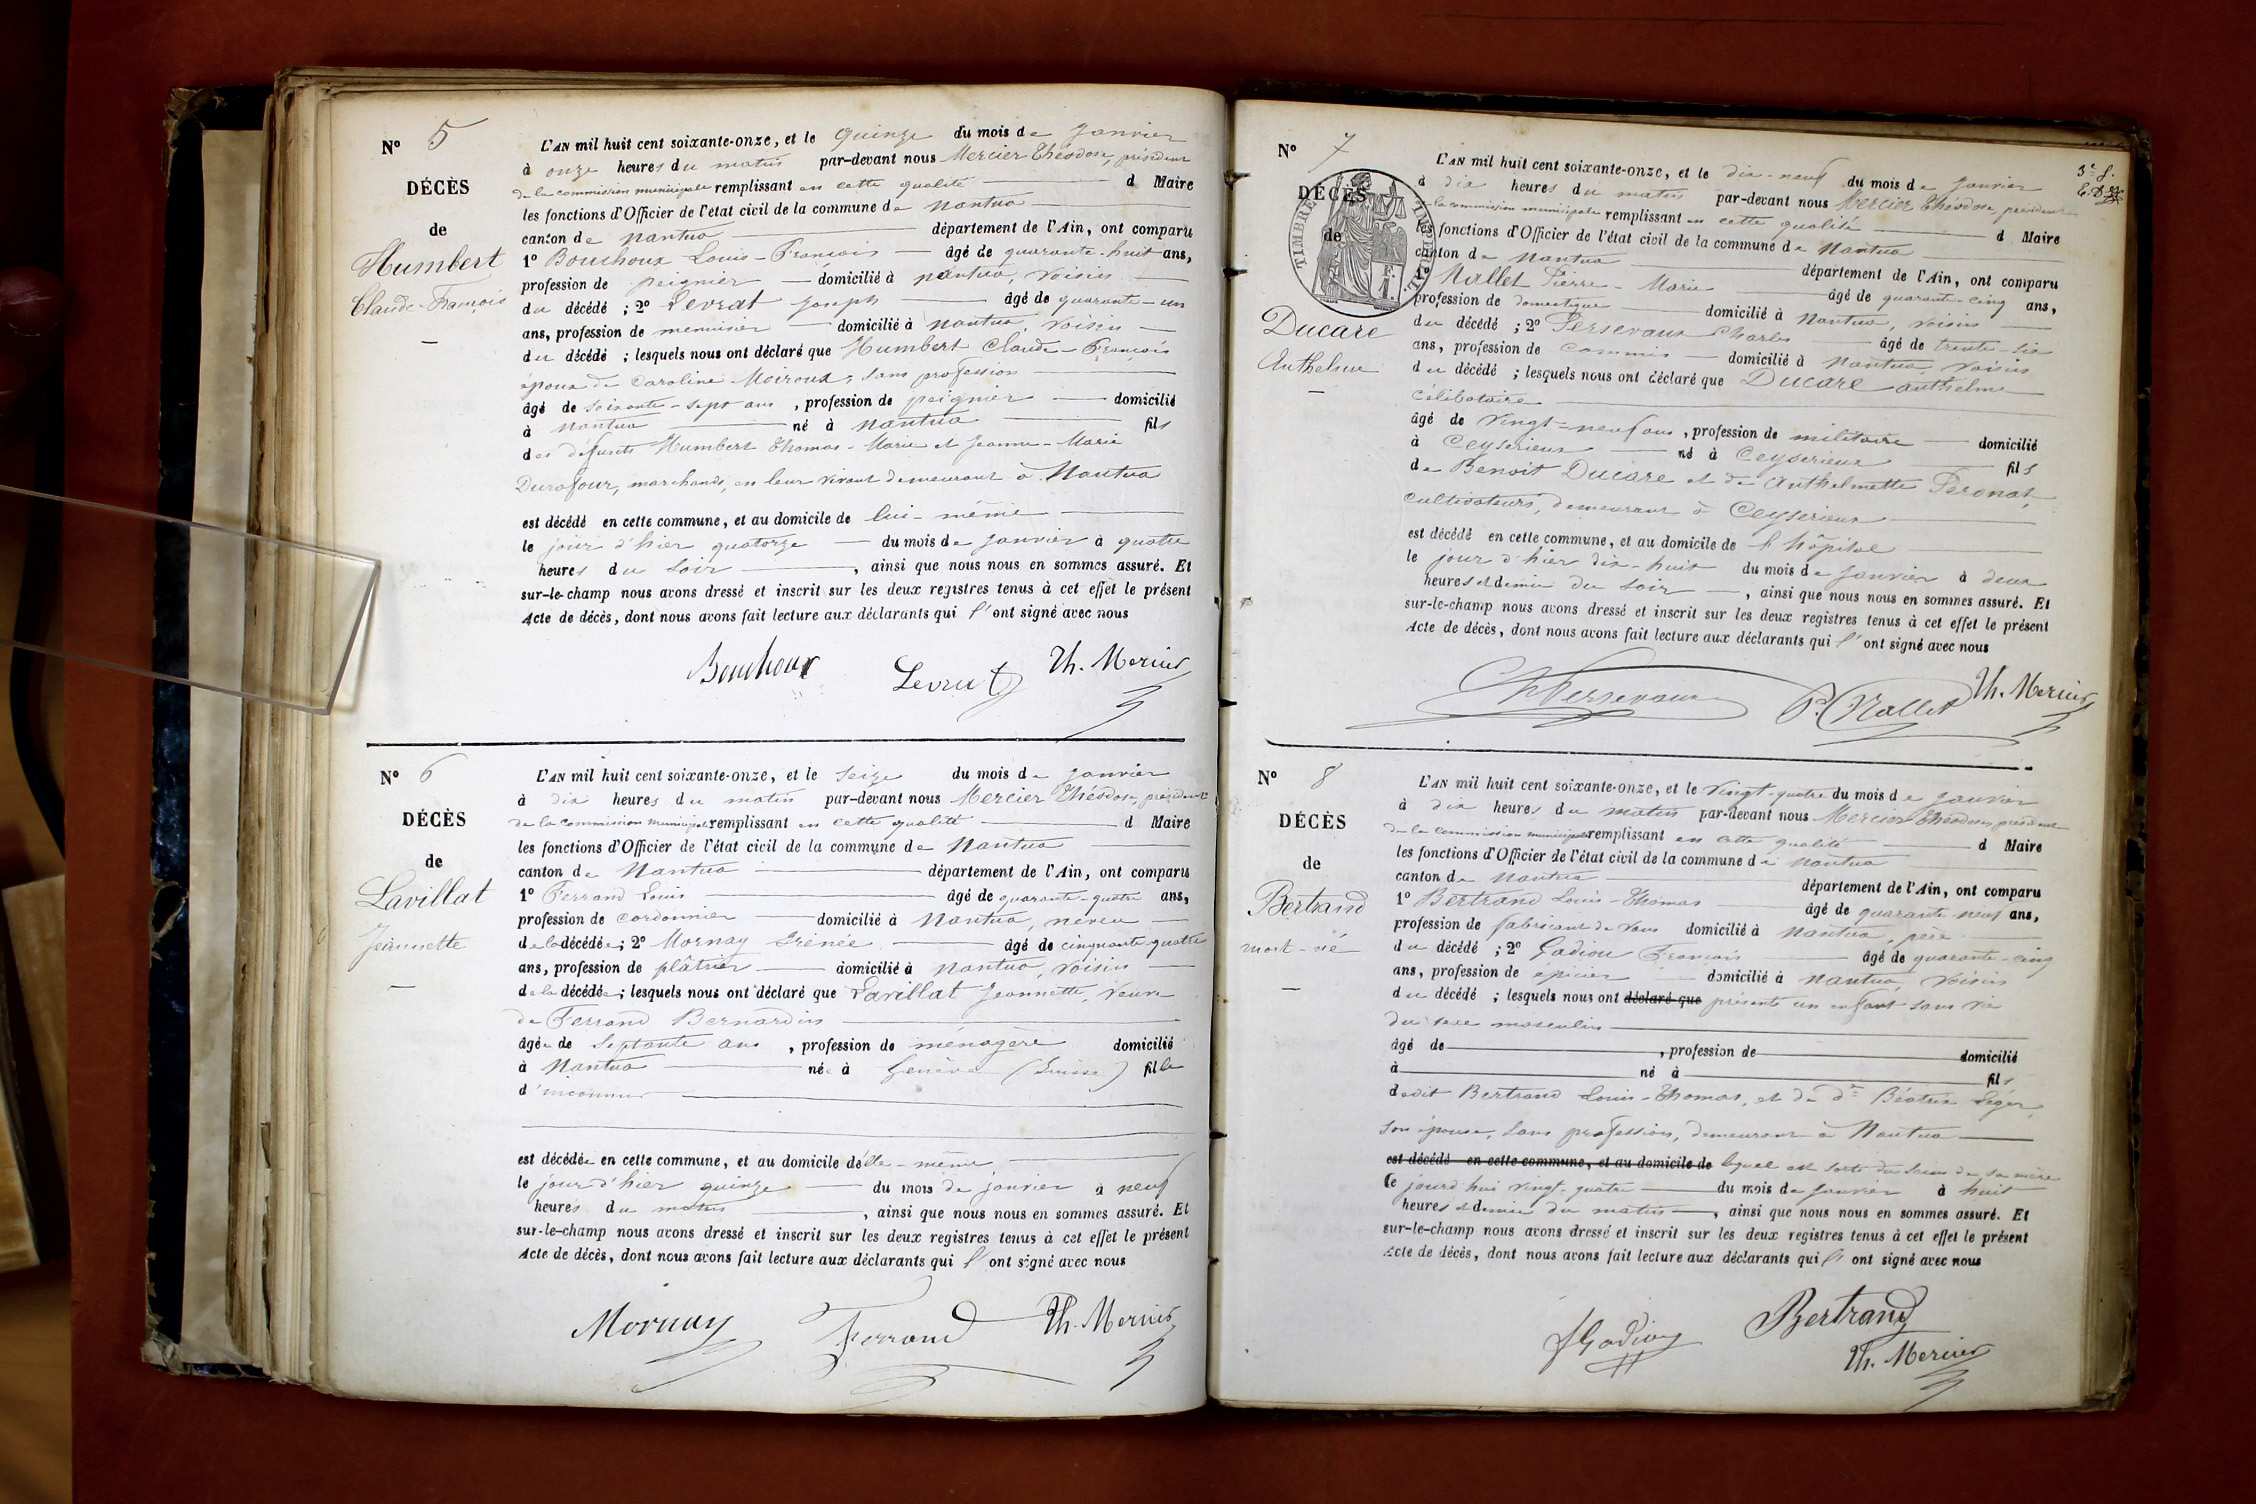 N° 5
DÉCÈS
de
Humbert
Claude-François
L'AN mil huit cent soixante-onze, et le quinze du mois de Janvier
à onze heures du matin par-devant nous Mercier Théodose, président
de la commission municipale remplissant en cette qualité d Maire
les fonctions d'Officier de l'état civil de la commune de Nantua
canton de Nantua département de l'Ain, ont comparu
1° Bouchoux Louis-François âgé de quarante-huit ans,
profession de peignier domicilié à Nantua, voisin
du décédé ; 2° Levrat Joseph âgé de quarante-un
ans, profession de menuisier domicilié à Nantua, voisin
du décédé ; lesquels nous ont déclaré que Humbert Claude-François
époux de Caroline Moiroux, sans profession
âgé de soixante-sept ans, profession de peignier domicilié
à Nantua né à Nantua fils
des défunts Humbert Thomas-Marie et Jeanne-Marie
Durafour, marchands, en leur vivant demeurant à Nantua
est décédé en cette commune, et au domicile de lui-même
le jour d'hier quatorze du mois de Janvier à quatre
heures du soir, ainsi que nous nous en sommes assuré. Et
sur-le-champ nous avons dressé et inscrit sur les deux registres tenus à cet effet le présent
Acte de décès, dont nous avons fait lecture aux déclarants qui l'ont signé avec nous
Bouchoux Levrat Th. Mercier
N° 6
DÉCÈS
de
Lavillat
Jeannette
L'AN mil huit cent soixante-onze, et le seize du mois de Janvier
à dix heures du matin par-devant nous Mercier Théodose, président
de la commission municipale remplissant en cette qualité d Maire
les fonctions d'Officier de l'état civil de la commune de Nantua
canton de Nantua département de l'Ain, ont comparu
1° Ferrand Louis âgé de quarante-quatre ans,
profession de cordonnier domicilié à Nantua, neveu
de la décédée ; 2° Mornay Irénée âgé de cinquante-quatre
ans, profession de plâtrier domicilié à Nantua, voisin
de la décédée ; lesquels nous ont déclaré que Lavillat Jeannette, veuve
de Ferrand Bernardin
âgée de septante ans, profession de ménagère domicilié
à Nantua née à Genève (Suisse) fille
d'inconnus
est décédée en cette commune, et au domicile d'elle-même
le jour d'hier quinze du mois de Janvier à neuf
heures du matin, ainsi que nous nous en sommes assuré. Et
sur-le-champ nous avons dressé et inscrit sur les deux registres tenus à cet effet le présent
Acte de décès, dont nous avons fait lecture aux déclarants qui l'ont signé avec nous
Mornay Ferrand Th. Mercier
3e f.
N° 7
DÉCÈS
de
TIMBRE IMPÉRIAL
Ducare
Anthelme
L'AN mil huit cent soixante-onze, et le dix-neuf du mois de Janvier
à dix heures du matin par-devant nous Mercier Théodose président
de la commission municipale remplissant en cette qualité d Maire
les fonctions d'Officier de l'état civil de la commune de Nantua
canton de Nantua département de l'Ain, ont comparu
1° Nallet Pierre-Marie âgé de quarante-cinq ans,
profession de domestique domicilié à Nantua, voisin
du décédé ; 2° Persevaux Charles âgé de trente-six
ans, profession de commis domicilié à Nantua, voisin
du décédé ; lesquels nous ont déclaré que Ducare Anthelme
célibataire
âgé de vingt-neuf ans, profession de militaire domicilié
à Ceyserieux né à Ceyserieux fils
de Benoit Ducare et de Anthelmette Peronat,
cultivateurs, demeurant à Ceyserieux
est décédé en cette commune, et au domicile de l'hôpital
le jour d'hier dix-huit du mois de Janvier à deux
heures et demie du soir, ainsi que nous nous en sommes assuré. Et
sur-le-champ nous avons dressé et inscrit sur les deux registres tenus à cet effet le présent
Acte de décès, dont nous avons fait lecture aux déclarants qui l'ont signé avec nous
Ch Persevaux P. Nallet Th. Mercier
N° 8
DÉCÈS
de
Bertrand
mort-né
L'AN mil huit cent soixante-onze, et le vingt-quatre du mois de Janvier
à dix heures du matin par-devant nous Mercier Théodose, président
de la commission municipale remplissant en cette qualité d Maire
les fonctions d'Officier de l'état civil de la commune de Nantua
canton de Nantua département de l'Ain, ont comparu
1° Bertrand Louis-Thomas âgé de quarante-neuf ans,
profession de fabricant de domicilié à Nantua, père
du décédé ; 2° Gadiou François âgé de quarante-cinq
ans, profession de épicier domicilié à Nantua, voisin
du décédé ; lesquels nous ont déclaré que présenté un enfant sans vie
du sexe masculin
âgé de, profession de domicilié
à né à fils
dedit Bertrand Louis-Thomas, et de de Béatrix Léger,
son épouse, sans profession, demeurant à Nantua
est décédé en cette commune, et au domicile de lequel est sorti du sein de sa mère
le jourd'hui vingt-quatre du mois de Janvier à huit
heures et demie du matin, ainsi que nous nous en sommes assuré. Et
sur-le-champ nous avons dressé et inscrit sur les deux registres tenus à cet effet le présent
Acte de décès, dont nous avons fait lecture aux déclarants qui l'ont signé avec nous
f Gadiou Bertrand
Th. Mercier